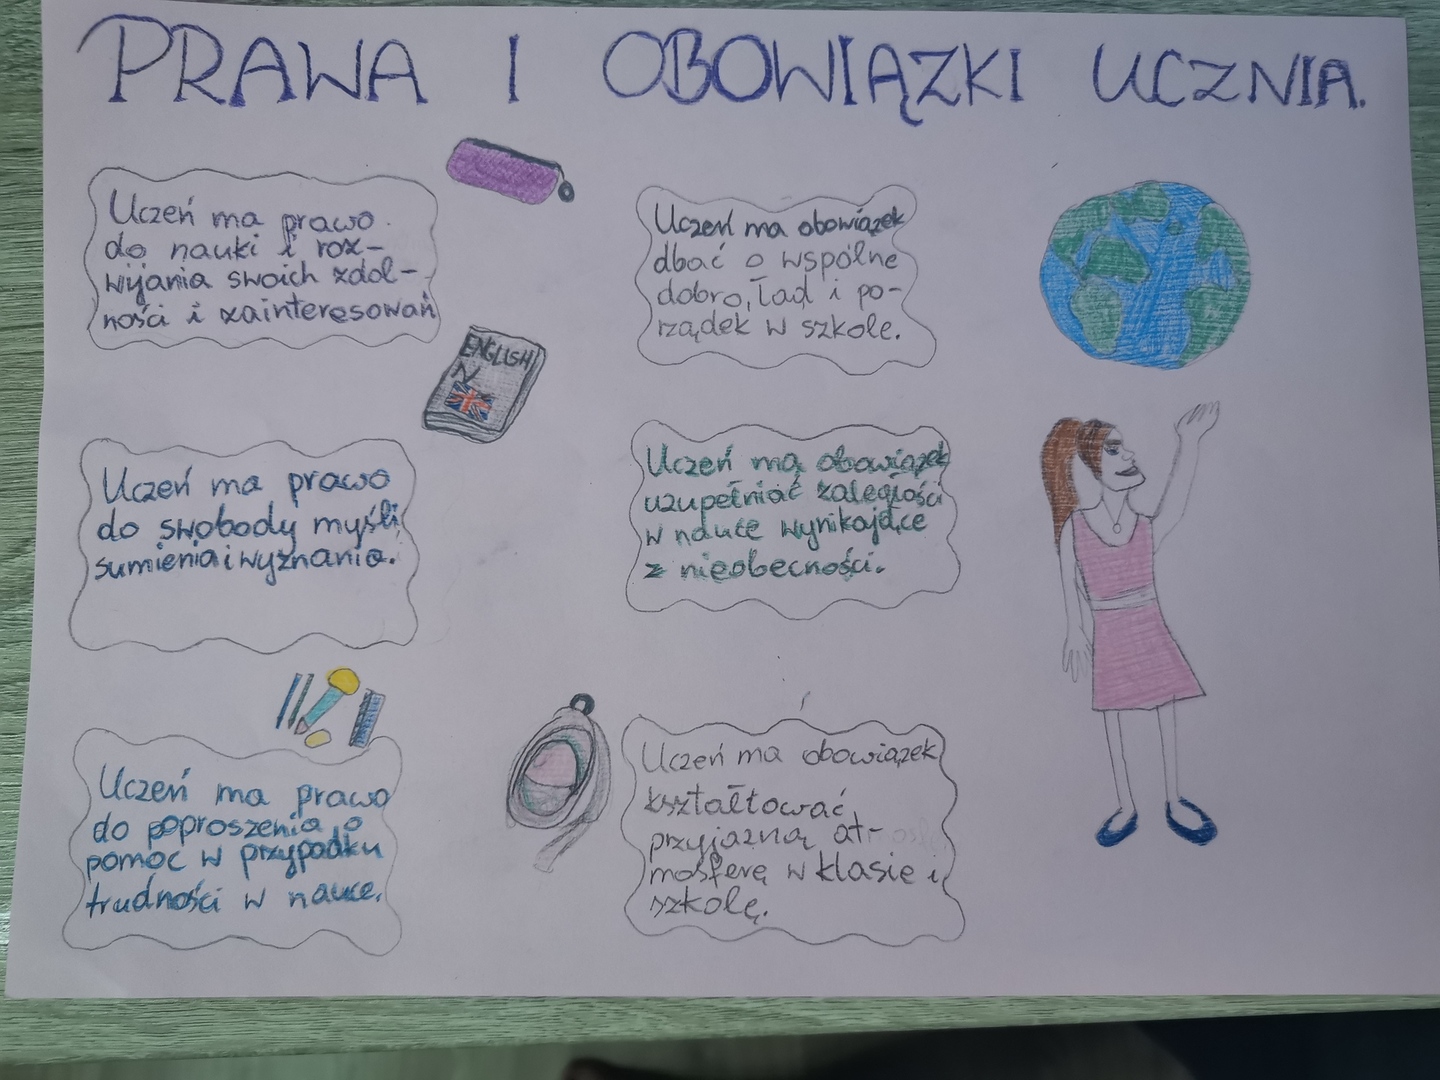 PRAWA I OBOWIĄZKI UCZNIA.
Uczeń ma prawo
do nauki i roz-
wijania swoich zdol-
ności i zainteresowań
ENGLISH
Uczeń ma prawo
do swobody myśli,
sumienia i wyznania.
Uczeń ma prawo
do poproszenia o
pomoc w przypadku
trudności w nauce.
Uczeń ma obowiązek
dbać o wspólne
dobro, ład i po-
rządek w szkole.
Uczeń ma obowiązek
uzupełniać zaległości
w nauce wynikające
z nieobecności.
Uczeń ma obowiązek
kształtować
przyjazną at-
mosferę w klasie i
szkolę.